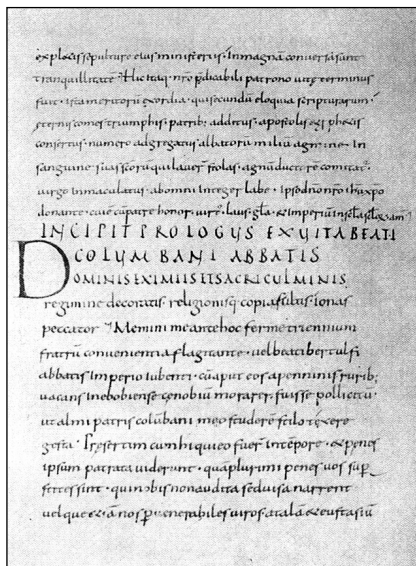 expletis sepulture eius ministeriis · in magnam conversi sunt
tranquillitatē · Hic itaq· nr̄o p̄dicabili patrono uitę terminus
fuit · ista meritorū exordia · qui secundū eloquia scripturarum ·
ęternis comes triumphis · patrib; additus · apostolis et prophetis
consertus · numero adgregatus albatorū miliū agmine · In
sanguine suas scōrū qui lauer̄ stolas · agnū ductorē comitat᷒
uirgo inmaculatus · ab omni integer labe · ipso dn̄o nr̄o ihū xp̄o
donante · cui ē cū patre honor · uirt᷒ · laus · gl̄a · & imperiū in scl̄a scl̄oꝝ am̄
INCIPIT PROLOGUS EX UITA BEATI
COLUMBANI ABBATIS
DOMINIS EXIMIIS ET SACRI CULMINIS
regimine decoratis · religionisq· copia fultis · ionas
peccator · Memini me ante hoc ferme triennium
fratrū conuenientia flagitante · uel beati bertulfi
abbatis imperio iubenti · cū aput eos apenninis ruribˀ
uacans in ebobiense cęnobiū morarer · fuisse pollicitū ·
ut almi patris colūbani meo studerē stilo texere
gesta · Pręsertim cum hi qui eo fuer̄ in tēpore · et penes
ipsum patrata uiderunt · quā plurimi penes uos sup̄
stites sint · qui nobis non audita sed uisa narrent
uel que et a nos p̄ uenerabiles uiros · atalā & eustasiū